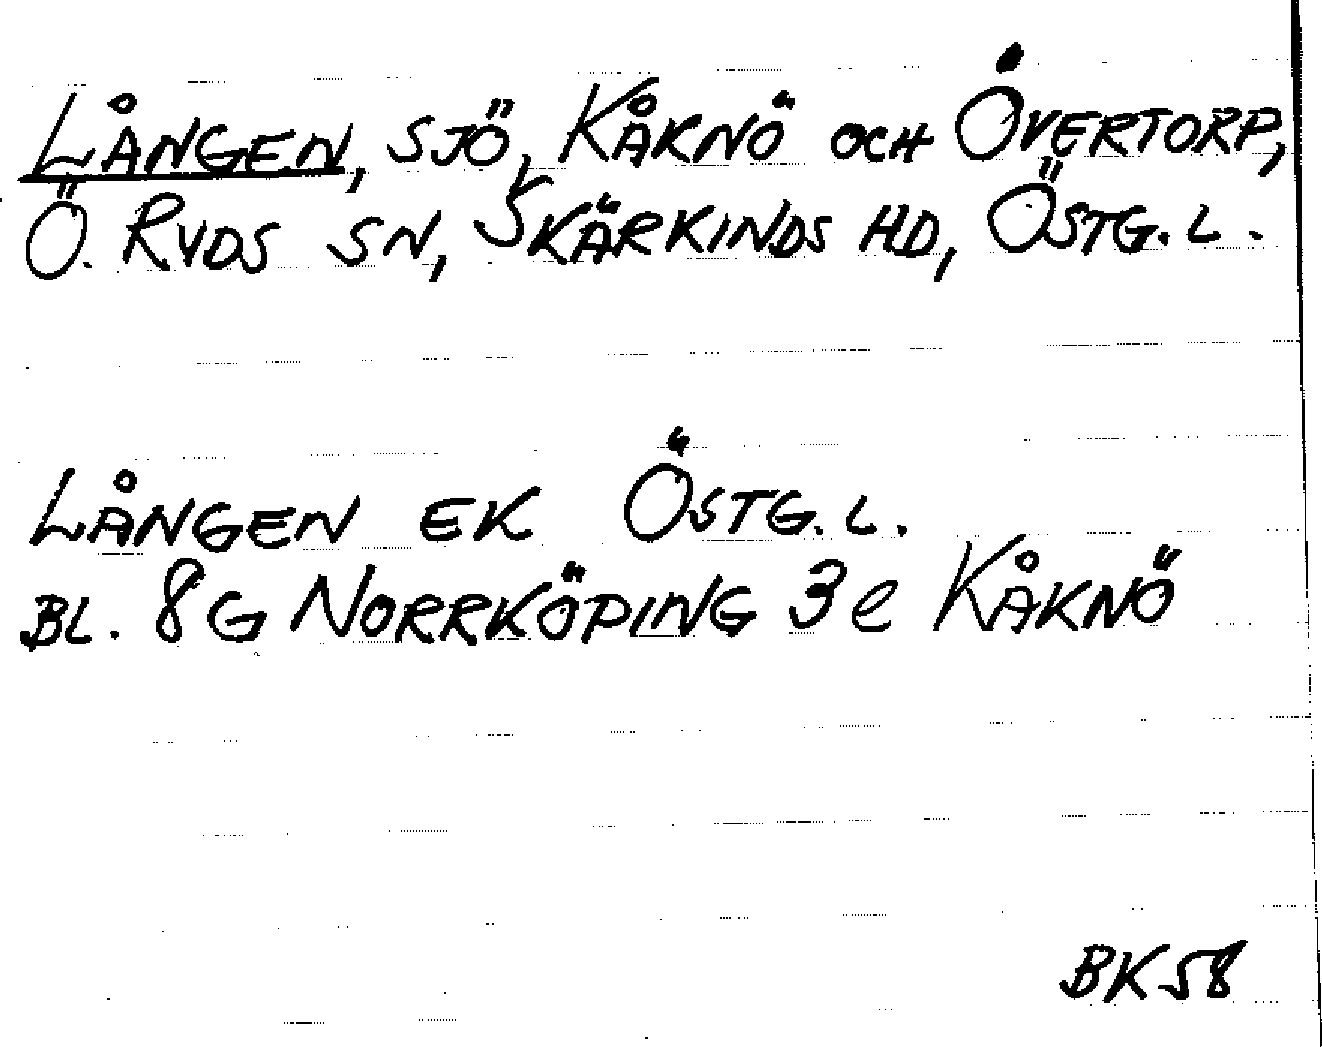 LÅNGEN, SJÖ, KÅKNÖ OCH ÖVERTORP,
Ö. RYDS SN, SKÄRKINDS HD, ÖSTG. L.
LÅNGEN EK ÖSTG. L.
BL. 8G NORRKÖPING 3e KÅKNÖ
BK58